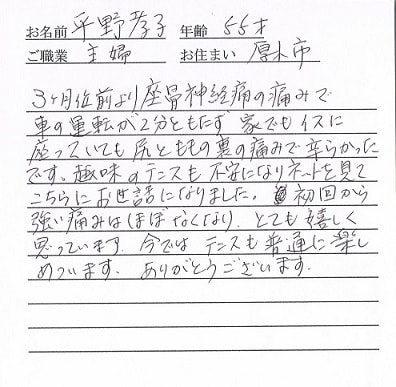 お名前 平野孝子 年齢 55才
ご職業 主婦 お住まい 厚木市
3ヶ月位前より座骨神経痛の痛みで
車の運転が2分ともたず 家でもイスに
座っていても尻とももの裏の痛みで辛らかった
です。趣味のテニスも不安になりネットを見て
こちらにお世話になりました。初回から
強い痛みはほぼなくなり、とても嬉しく
思っています。今では テニスも普通に楽し
めています。 ありがとうございます.